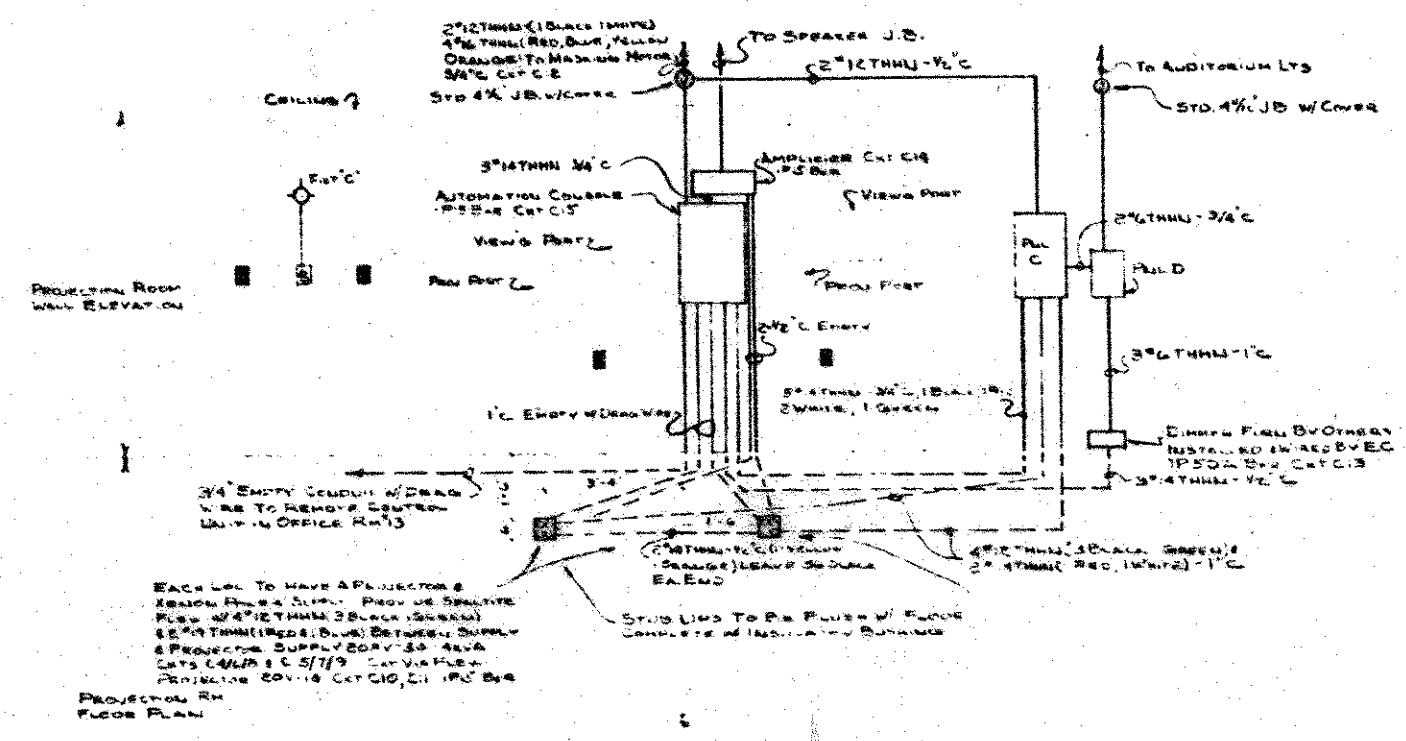 2#12 THHN (1 BLACK 1 WHITE)
4#16 THHN (RED, BLUE, YELLOW
ORANGE) TO MASKING MOTOR
3/4"C CKT C-2
STD. 4 11/16" J.B. W/COVER
TO SPEAKER J.B.
2#12 THHN - 1/2"C
TO AUDITORIUM LTS
STD. 4 11/16" JB W/ COVER
CEILING
FIXT "C"
3#14 THHN 3/4"C
AUTOMATION CONSOLE
CKT C-15
AMPLIFIER CKT C14
VIEW'G PORT
VIEW'G PORT
PROJ PORT
PROJ PORT
PNL
C
2#6 THHN - 3/4"C
PNL D
PROJECTION ROOM
WALL ELEVATION
2-1/2"C EMPTY
3#6 THHN - 1"C
1"C EMPTY W/ DRAG WIRE
THHN - 3/4"C, 1 BLACK
2 WHITE, 1 GREEN
DIMMER FURN BY OTHERS
INSTALLED & WIRED BY E.C.
CKT C-13
3#14 THHN - 1/2"C
3/4" EMPTY CONDUIT W/ DRAG
WIRE TO REMOTE CONTROL
UNIT IN OFFICE RM #13
3-4
1-6
6"
1-6
THHN - 1/2"C (1 YELLOW
ORANGE) LEAVE SLACK
EA. END
4#12 THHN (3 BLACK GREEN) &
2#14 THHN (RED, 1 WHITE) - 1"C
EACH LOC. TO HAVE A PROJECTOR &
XENON POWER SUPPLY PROVIDE SEALTITE
FLEX W/ 4#12 THHN (3 BLACK, 1 GREEN)
& 2#14 THHN (1 RED & 1 BLUE) BETWEEN SUPPLY
& PROJECTOR SUPPLY 208V-3Ø 4KVA
CKTS C4/6/8 & C 5/7/9 VIA FLEX
PROJECTOR CKT C10, C11
STUB UPS TO BE FLUSH W/ FLOOR
COMPLETE W/ INSULATING BUSHINGS
PROJECTION RM
FLOOR PLAN